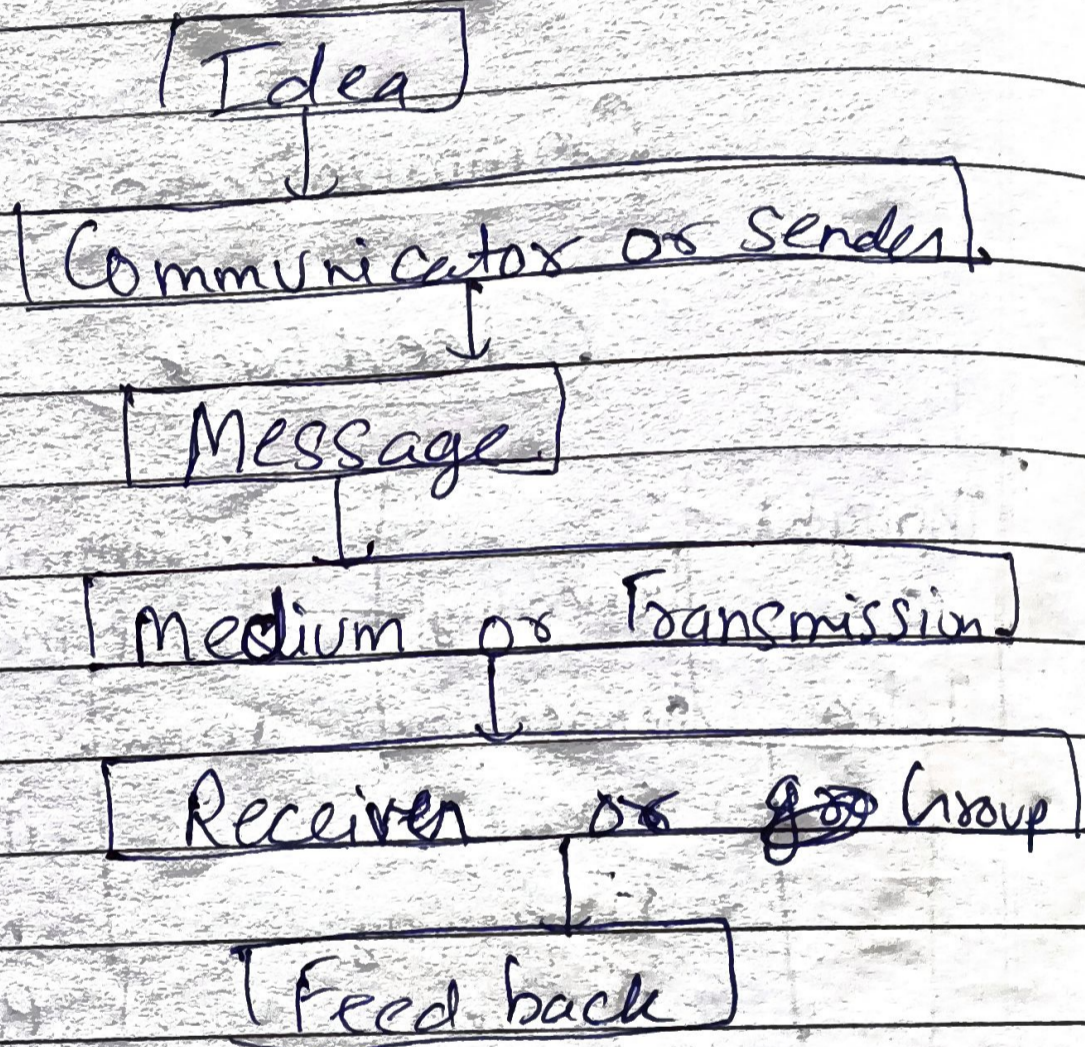 Idea
Communicator or Sender.
Message.
Medium or Transmission.
Receiver or Group
Feed back